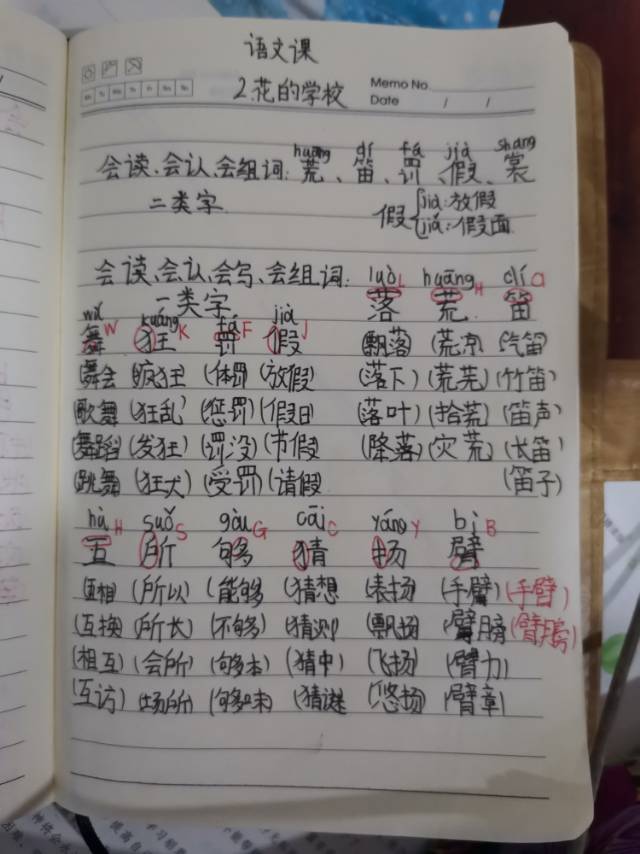 语文课
2.花的学校
Memo No.
Date / /
huāng dí fá jià shang
会读、会认、会组词:荒、笛、罚、假、裳
二类字
假{jià:放假
jiǎ:假面
会读、会认、会写、会组词:
一类字
luò L huāng H dí D
落 荒 笛
(飘落) (荒凉) (汽笛)
(落下) (荒芜) (竹笛)
(落叶) (拾荒) (笛声)
(降落) (灾荒) (长笛)
(笛子)
wǔ kuáng fá jià
舞 W 狂 K 罚 F 假 J
(舞会) (疯狂) (体罚) (放假)
(歌舞) (狂乱) (惩罚) (假日)
(舞蹈) (发狂) (罚没) (节假)
(跳舞) (狂犬) (受罚) (请假)
hù H suǒ S gòu G cāi C yáng Y bì B
互 所 够 猜 扬 臂
(互相) (所以) (能够) (猜想) (表扬) (手臂) (手臂)
(互换) (所长) (不够) (猜测) (飘扬) (臂膀) (臂膀)
(相互) (会所) (够本) (猜中) (飞扬) (臂力)
(互访) (场所) (够味) (猜谜) (悠扬) (臂章)